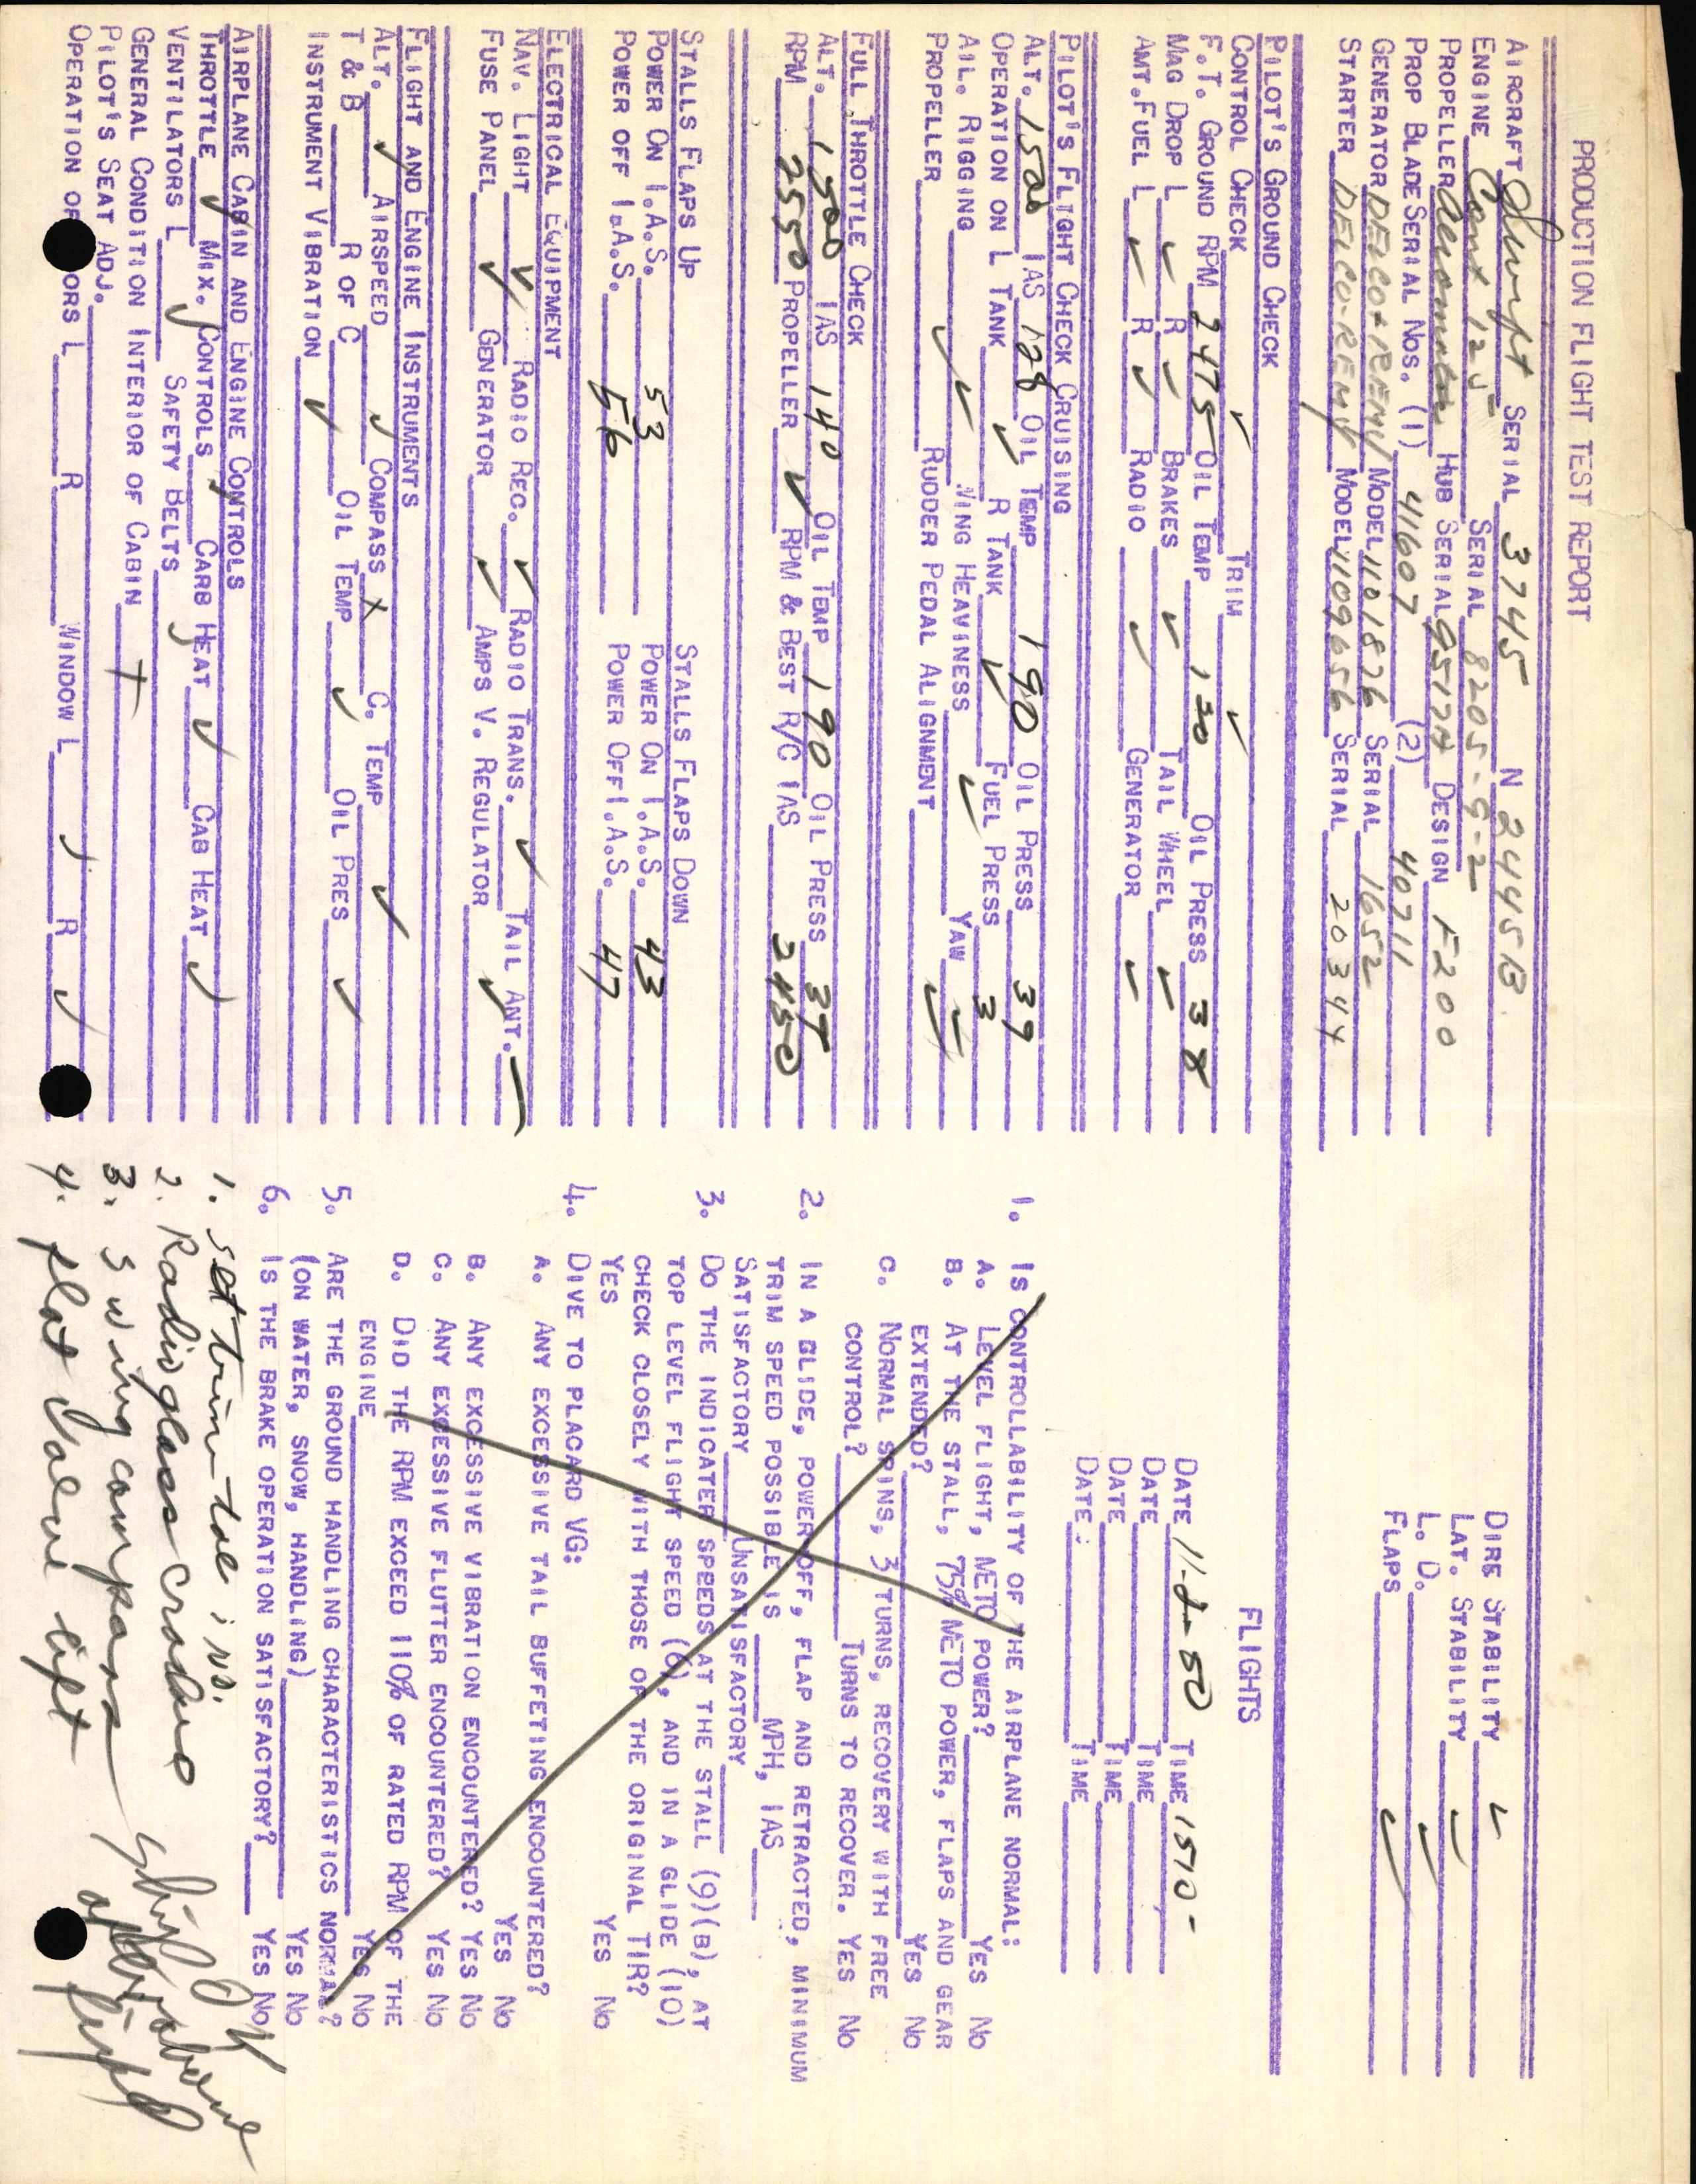 PRODUCTION FLIGHT TEST REPORT
AIRCRAFT Swift SERIAL 3745 N 2445B
ENGINE Cont 125 SERIAL 8205-9-2
PROPELLER HUB SERIAL DESIGN F200
PROP BLADE SERIAL NOS. (1) 41607 (2) 40711
GENERATOR DELCO-REMY MODEL 1101876 SERIAL 1652
STARTER DELCO-REMY MODEL 1109656 SERIAL 20344
DIRE STABILITY ✓
LAT. STABILITY ✓
L. D. ✓
FLAPS ✓
PILOT'S GROUND CHECK
CONTROL CHECK ✓ TRIM ✓
F.T. GROUND RPM 2475 OIL TEMP 130 OIL PRESS 38
MAG DROP L ✓ R ✓ BRAKES ✓ TAIL WHEEL ✓
AMT.FUEL L ✓ R ✓ RADIO ✓ GENERATOR ✓
PILOT'S FLIGHT CHECK CRUISING
ALT. 1500 IAS 128 OIL TEMP 190 OIL PRESS 39
OPERATION ON L TANK ✓ R TANK ✓ FUEL PRESS 3
AIL. RIGGING ✓ WING HEAVINESS ✓ YAW ✓
PROPELLER ✓ RUDDER PEDAL ALIGNMENT ✓
FULL THROTTLE CHECK
ALT. 1500 IAS 140 OIL TEMP 190 OIL PRESS 38
RPM 2550 PROPELLER ✓ RPM & BEST R/C IAS 2450
STALLS FLAPS UP STALLS FLAPS DOWN
POWER ON I.A.S. 53 POWER ON I.A.S. 43
POWER OFF I.A.S. 56 POWER OFF I.A.S. 47
ELECTRICAL EQUIPMENT
NAV. LIGHT ✓ RADIO REC. ✓ RADIO TRANS. ✓ TAIL ANT. —
FUSE PANEL ✓ GENERATOR ✓ AMPS V. REGULATOR ✓
FLIGHT AND ENGINE INSTRUMENTS
ALT. ✓ AIRSPEED ✓ COMPASS X C. TEMP ✓
T & B R OF C OIL TEMP ✓ OIL PRES ✓
INSTRUMENT VIBRATION ✓
AIRPLANE CABIN AND ENGINE CONTROLS
THROTTLE ✓ MIX. CONTROLS ✓ CARB HEAT ✓ CAB HEAT ✓
VENTILATORS L ✓ SAFETY BELTS ✓
GENERAL CONDITION INTERIOR OF CABIN +
PILOT'S SEAT ADJ.
OPERATION OF DOORS L R WINDOW L ✓ R ✓
FLIGHTS
DATE 11-2-50 TIME 1510-
DATE TIME
DATE TIME
DATE: TIME
1. IS CONTROLLABILITY OF THE AIRPLANE NORMAL:
A. LEVEL FLIGHT, METO POWER? YES NO
B. AT THE STALL, 75% METO POWER, FLAPS AND GEAR
EXTENDED? YES NO
C. NORMAL SPINS, 3 TURNS, RECOVERY WITH FREE
CONTROL? TURNS TO RECOVER. YES NO
2. IN A GLIDE, POWER OFF, FLAP AND RETRACTED, MINIMUM
TRIM SPEED POSSIBLE IS MPH, IAS
SATISFACTORY UNSATISFACTORY
3. DO THE INDICATER SPEEDS AT THE STALL (9)(B), AT
TOP LEVEL FLIGHT SPEED (6), AND IN A GLIDE (10)
CHECK CLOSELY WITH THOSE OF THE ORIGINAL TIR?
YES YES NO
4. DIVE TO PLACARD VG:
A. ANY EXCESSIVE TAIL BUFFETING ENCOUNTERED?
YES NO
B. ANY EXCESSIVE VIBRATION ENCOUNTERED? YES NO
C. ANY EXCESSIVE FLUTTER ENCOUNTERED? YES NO
D. DID THE RPM EXCEED 110% OF RATED RPM OF THE
ENGINE YES NO
5. ARE THE GROUND HANDLING CHARACTERISTICS NORMAL?
(ON WATER, SNOW, HANDLING) YES NO
6. IS THE BRAKE OPERATION SATISFACTORY? YES NO
1. set trim tab
2. Radio glass cracked
3. swing compass
4. flat left
Ship OK